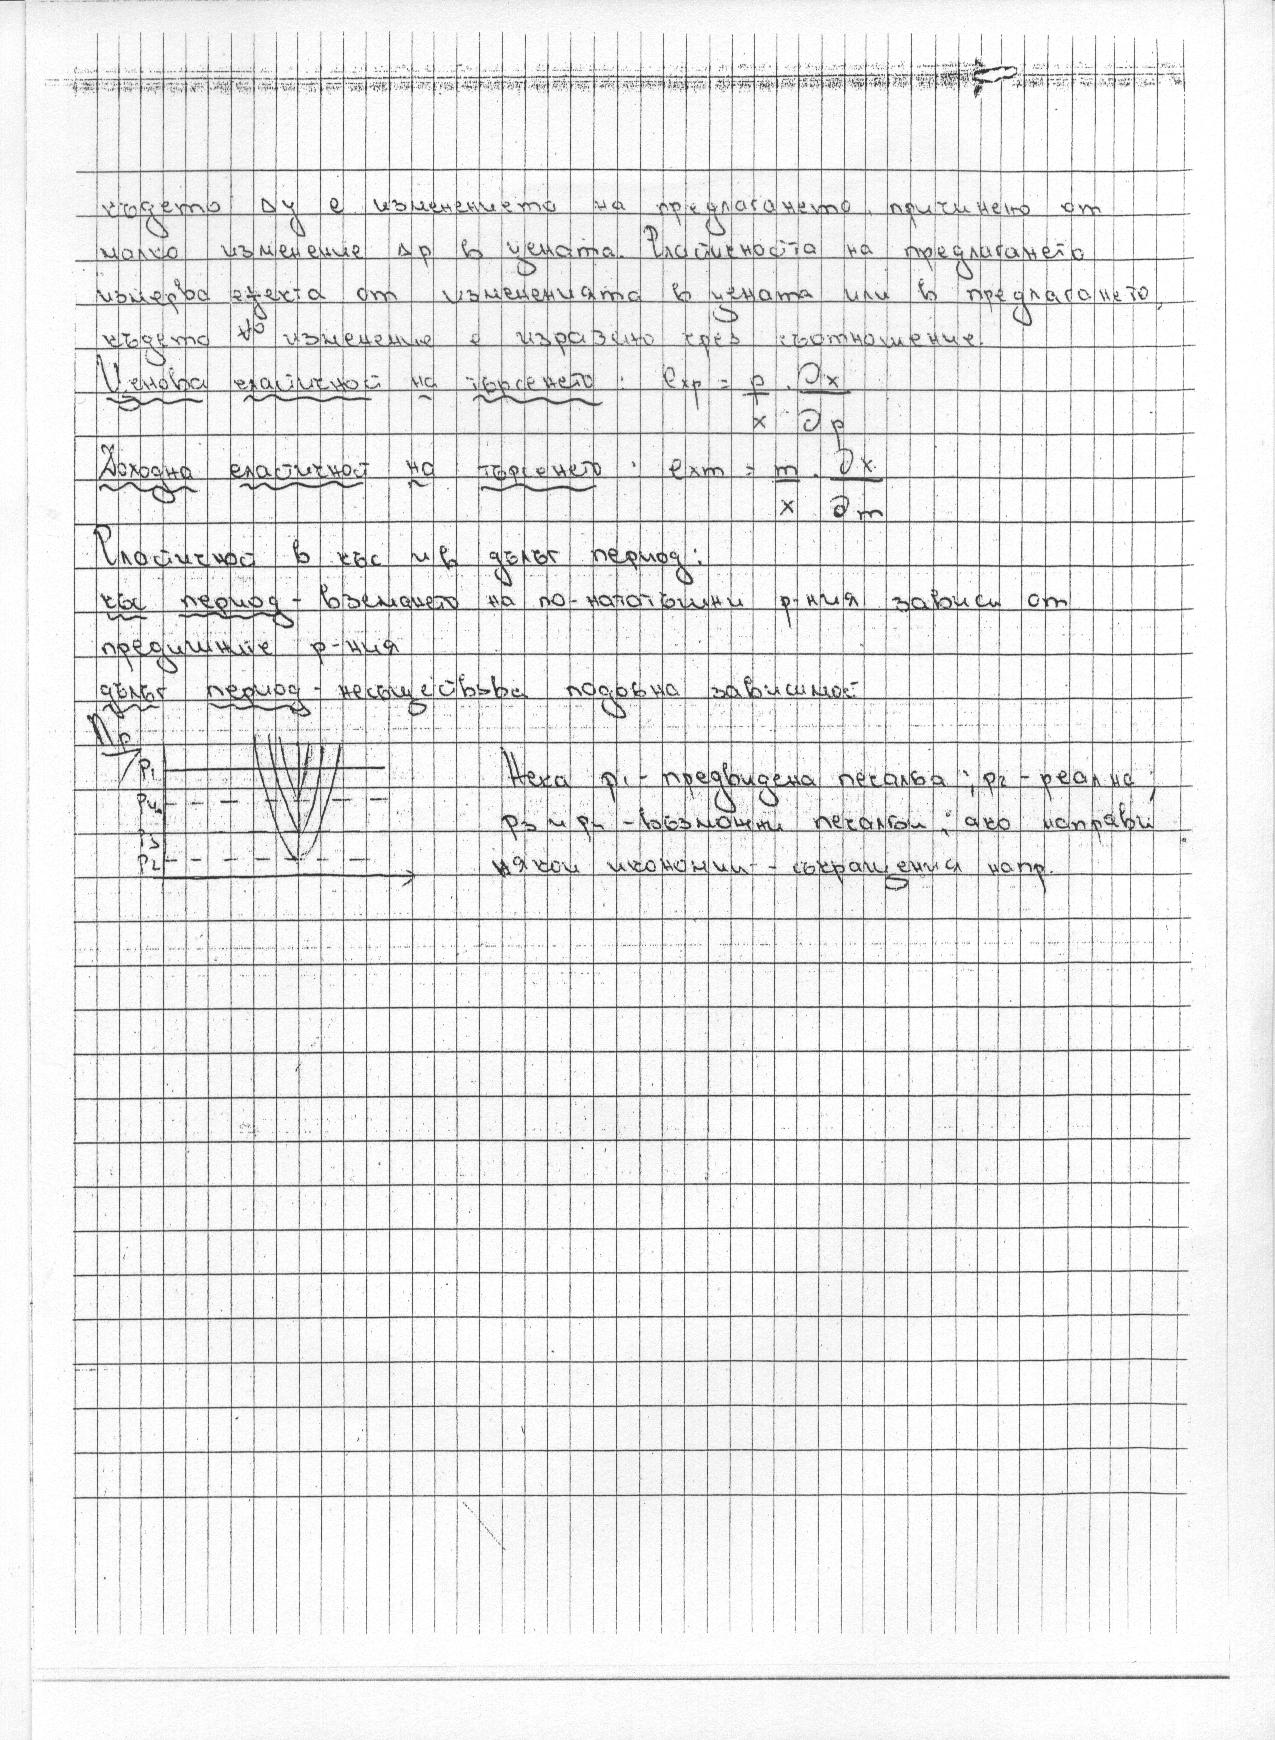 където Δy е изменението на предлагането, причинено от
малко изменение Δp в цената. Еластичността на предлагането
измерва ефекта от измененията в цената или в предлагането,
където изменение е изразено чрез съотношение.
Ценова еластичност на търсенето: exp = p/x . ∂x/∂p
Доходна еластичност на търсенето: exm = m/x . ∂x/∂m
Еластичност в къс и в дълъг период:
къс период - вземането на по-натотъшни р-ния зависи от
предишните р-ния
дълъг период - несъществъва подобна зависимост
Пр
p1
p4
p3
p2
Нека p1 - предвидена печалба; p2 - реална;
p3 и p4 - възможни печалби; ако направи
някои икономии - съкращения напр.